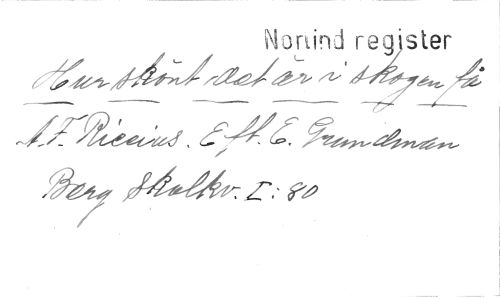 Norlind register
Hur skönt det är i skogen få
A. F. Riccius. Eft. E. Grundman
Berg Skolkv. I: 80